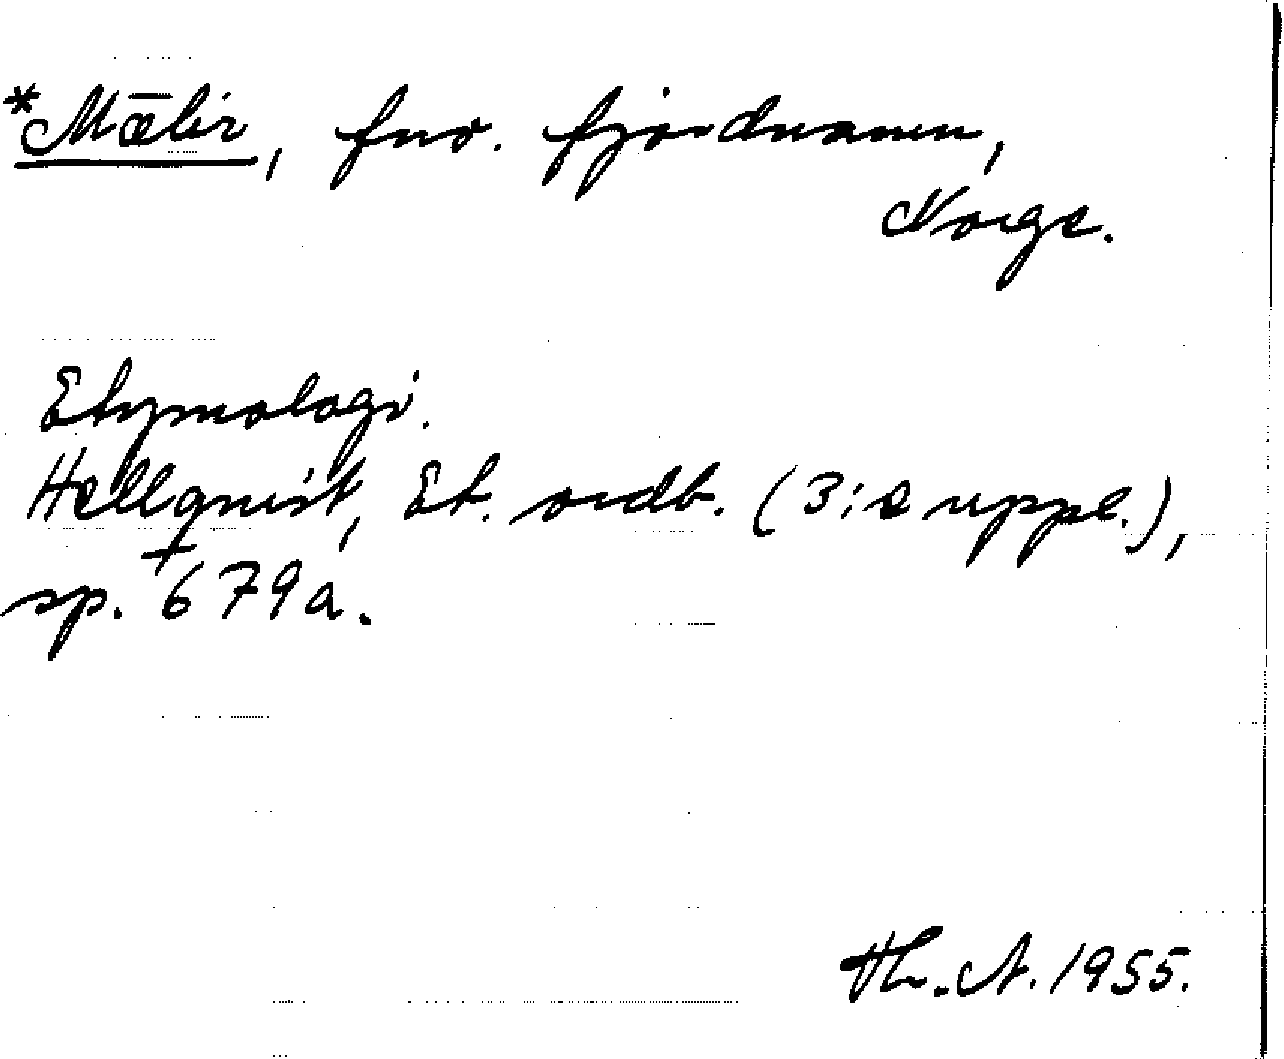 *Mǣlir, fno. fjordnamn,
Norge.
Etymologi.
Hellquist, Et. ordb. (3:e uppl.),
sp. 679a.
Th. A. 1955.